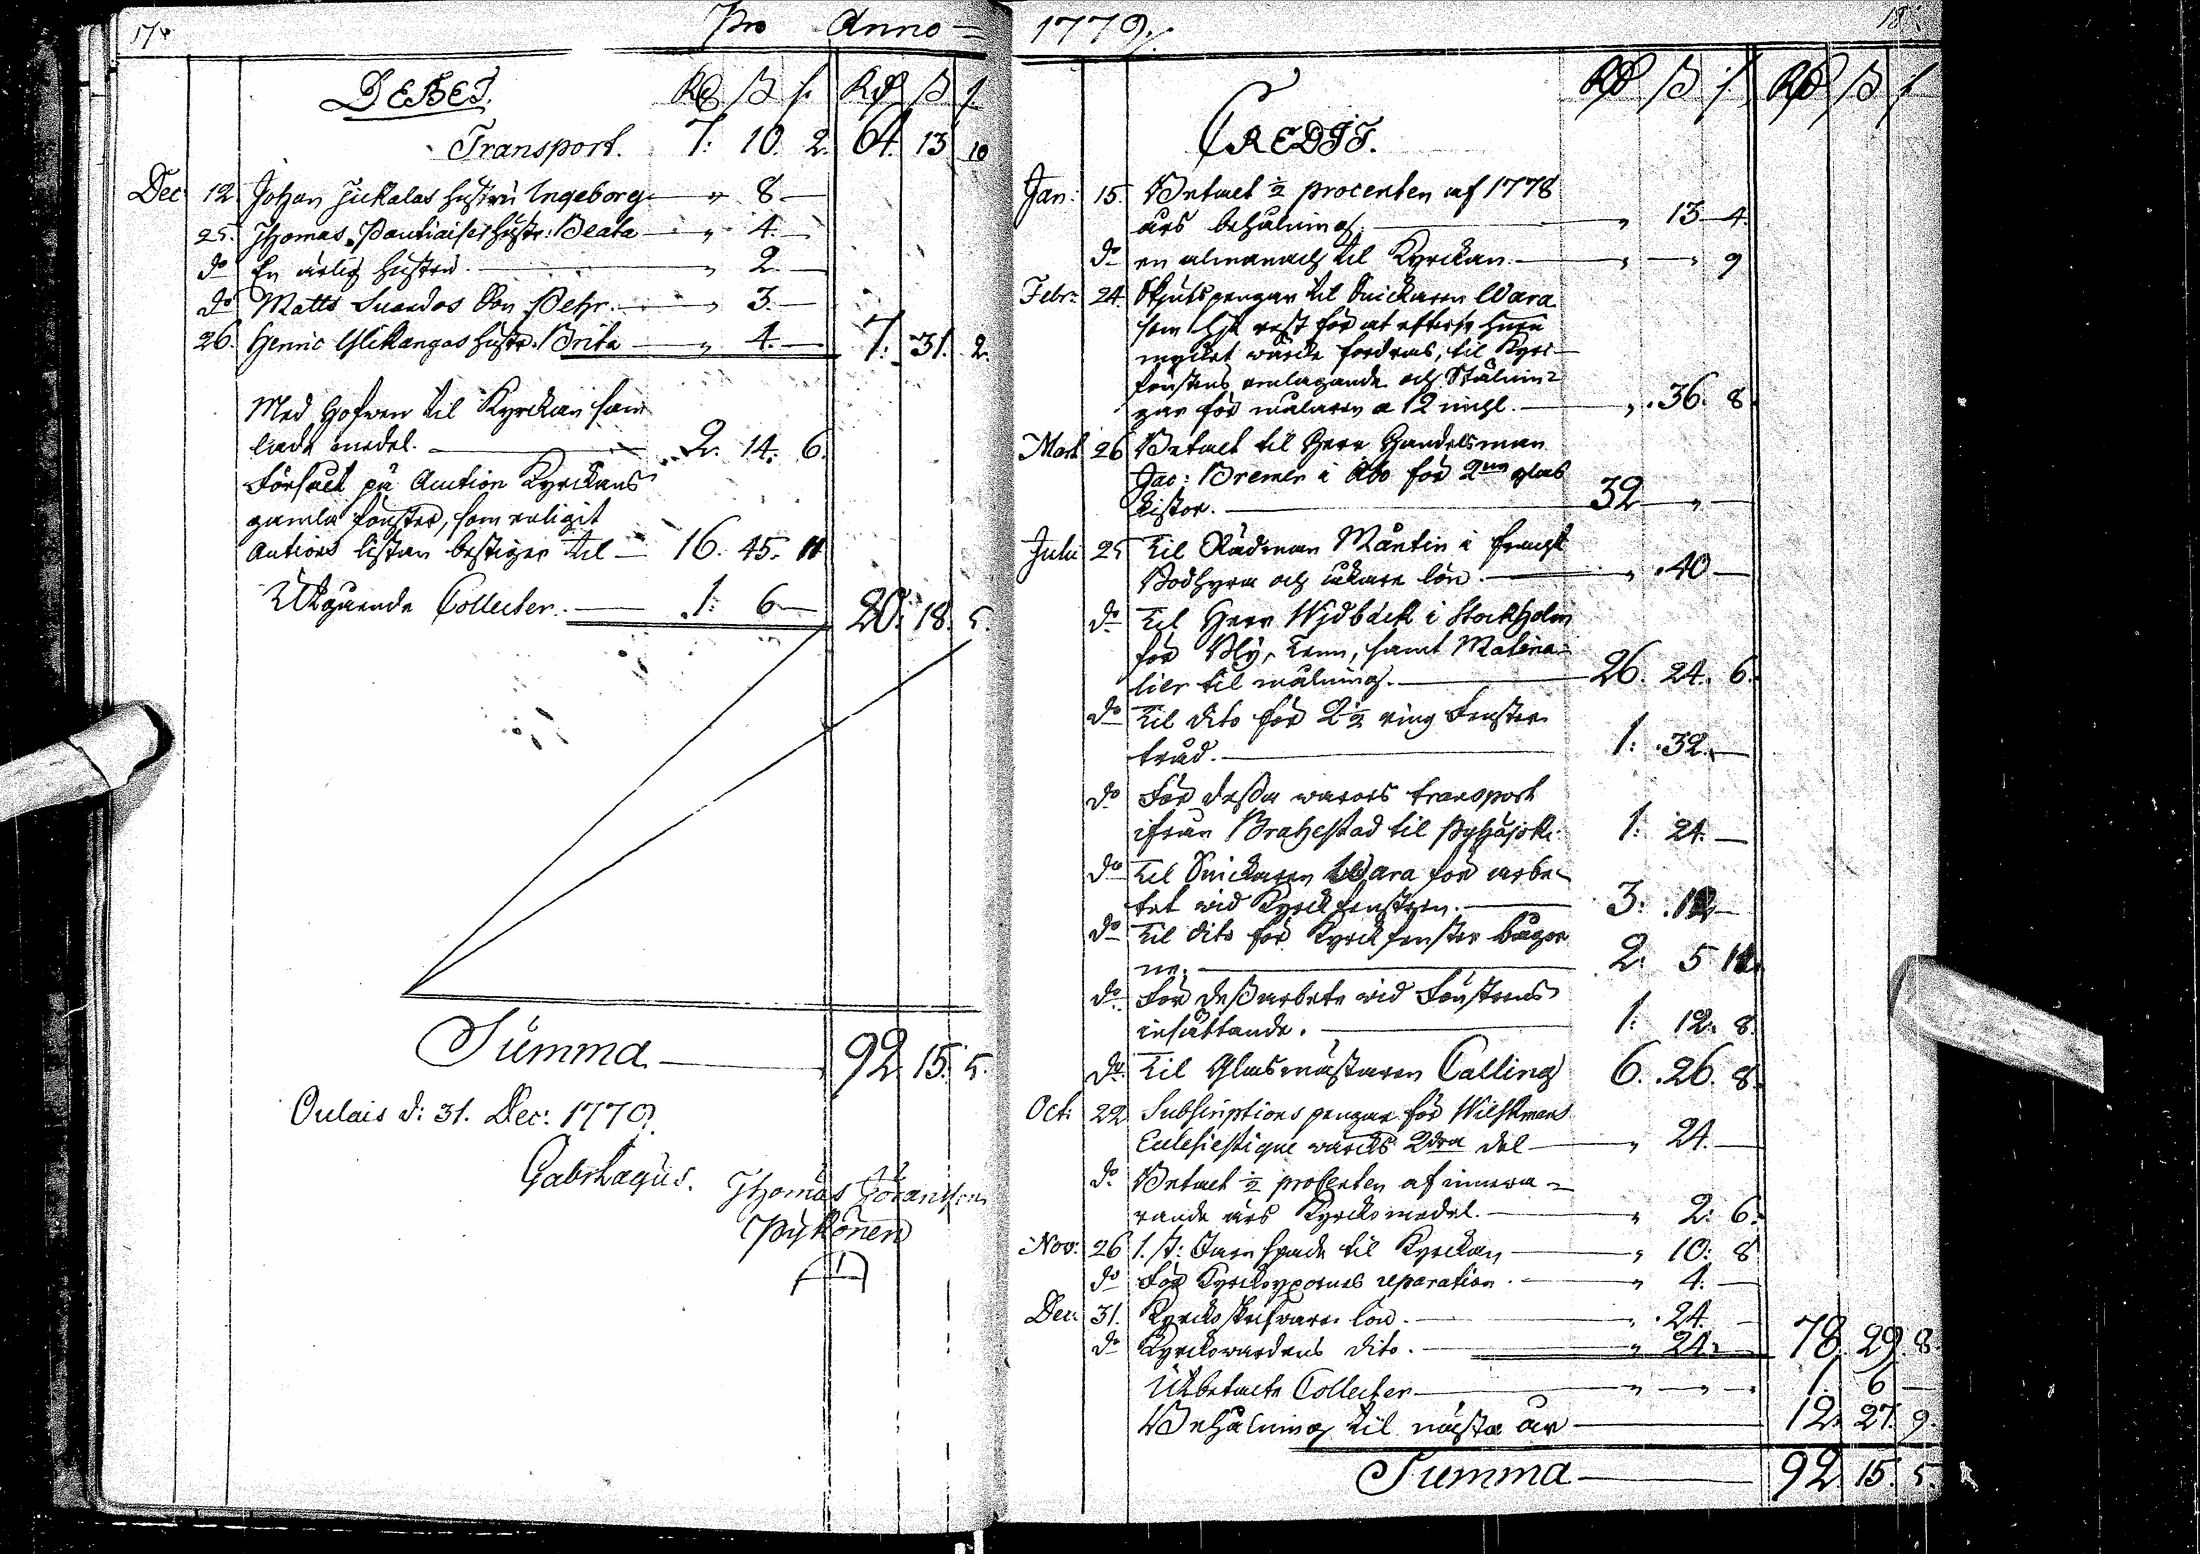 17. Pro Anno
DEBET. Rd ß f. Rd ß f
Transport. 7: 10. 2. 64. 13 10
Dec 12 Johan Juckalas hustru Ingeborg — " 8 —
25. Thomas Hustr: Beata — " 4. —
do En ärlig hustru. — " 2 —
do Matts Suandos Son Pehr. — " 3. —
26. Henric Ylikangas hustr. Brita — " 4. — 7: 31. 2.
Med Hofwen til Kyrckan sam
lade medel. — 2. 14: 6.
Försålt på Auction Kyrckans
gamla fönster, som enligit
Auctions listan bestiger til — 16. 45. 11
Utgående Collecter. — 1: 6 — 20. 18. 5.
Summa — 92. 15. 5.
Oulais d: 31. Dec: 1779.
Gabr Lagus. Thomas Göransson
Pykönen
1779. 18.
CREDIT. Rd ß f Rd ß f
Jan: 15. Betalt ½ procenten af 1778
års behålning. — " 13 — 4.
do en almanach til Kyrckan. — " — " 9
Febr: 24. Skjutspengar til Snickaren Wara
som hit rest för at efterse huru
mycket wärcke fordras, til Kyrc-
fönstens omlagande och
gar för målaren a 12 mihl. — " 36. 8
Mart 26 Betalt til Herr Handelsman
Jac: Bremer i Åbo för 2ne glas
kistor. — 32 — " —
Julii 25 Til Rådman Måntin i fracht
Bodhyra och åkare lön. — " 40 —
do Til Herr Widbäck i Stockholm
för Bly, Tenn, samt Materia-
lier til målning. — 26. 24. 6.
do Til dito för 2½ ring Fenster
tråd. — 1: 32. —
do För dessa warors transport
ifrån Brahestad til Pyhäjocki. 1: 24. —
do Til Snickaren Wara för arbe-
tet wid Kyrckfenstren. — 3: 12 —
do Til dito för Kyrckfenster bågar
ne. — 2: 5 11.
do För dess arbete wid Fönstrens
insättande. — 1: 12: 8.
do Til Glasmästaren Calling 6. 26. 8.
Oct: 22 Subscriptions pengar för Wilskmans
Eclesiestique wärcks 2dra del — " 24. —
do Betalt ½ procenten af innewa-
rande års Kyrckomedel. — " 2: 6.
Nov: 26 1. st: Jern spade til Kyrckan — " 10: 8
do För reparation. — " 4. —
Dec: 31. Kyrcko skrifware lön. — " 24. —
do Kyrckowärdens dito. — " 24. — 78. 29. 8.
Utbetalte Collecter — " — " — 1. 6 —
Behålning til nästa år — 12. 27. 9.
Summa — 92 15. 5.